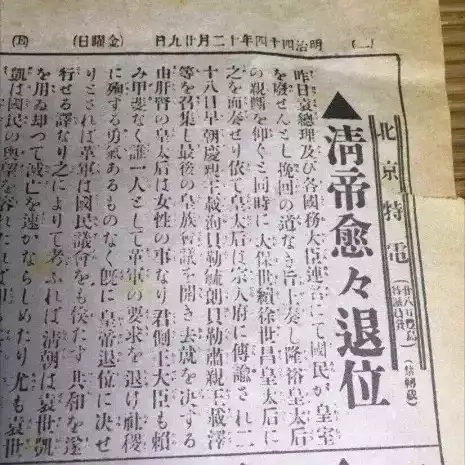 (二) 明治四十四年十二月廿九日 (金曜日)
北京特電 (廿八日 特派員發) (禁轉載)
▲清帝愈々退位
昨日袁總理及び各國務大臣連合にて國民が皇室
を廢せんとし挽回の道なき旨上奏し隆裕皇太后
の親斷を仰ぐと同時に太保世續徐世昌皇太后に
之を面奏せり依て皇太后は宗人府に傳諭され二
十八日早朝慶親王載洵貝勒毓朗貝勒肅親王載澤
等を召集し最後の皇族會議を開き去就を決する
由肝腎の皇太后は女性の事なり君側王大臣も賴
み甲斐なく誰一人として革軍の要求を退け社稷
に殉する勇氣あるものなく既に皇帝退位に決せ
りとされば革軍は國民議會をも俟たす共和を遂
行せる譯なり之によりて考ふれば清朝は袁世凱
を用ゐ却つて滅亡を速かならしめたり尤も袁世
凱は國民の輿望を容れたれば